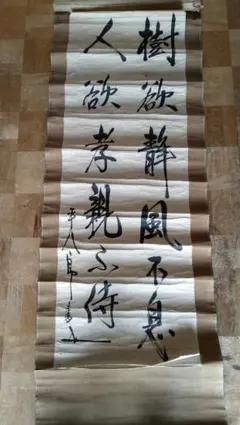 樹欲静風不息
人欲孝親不待